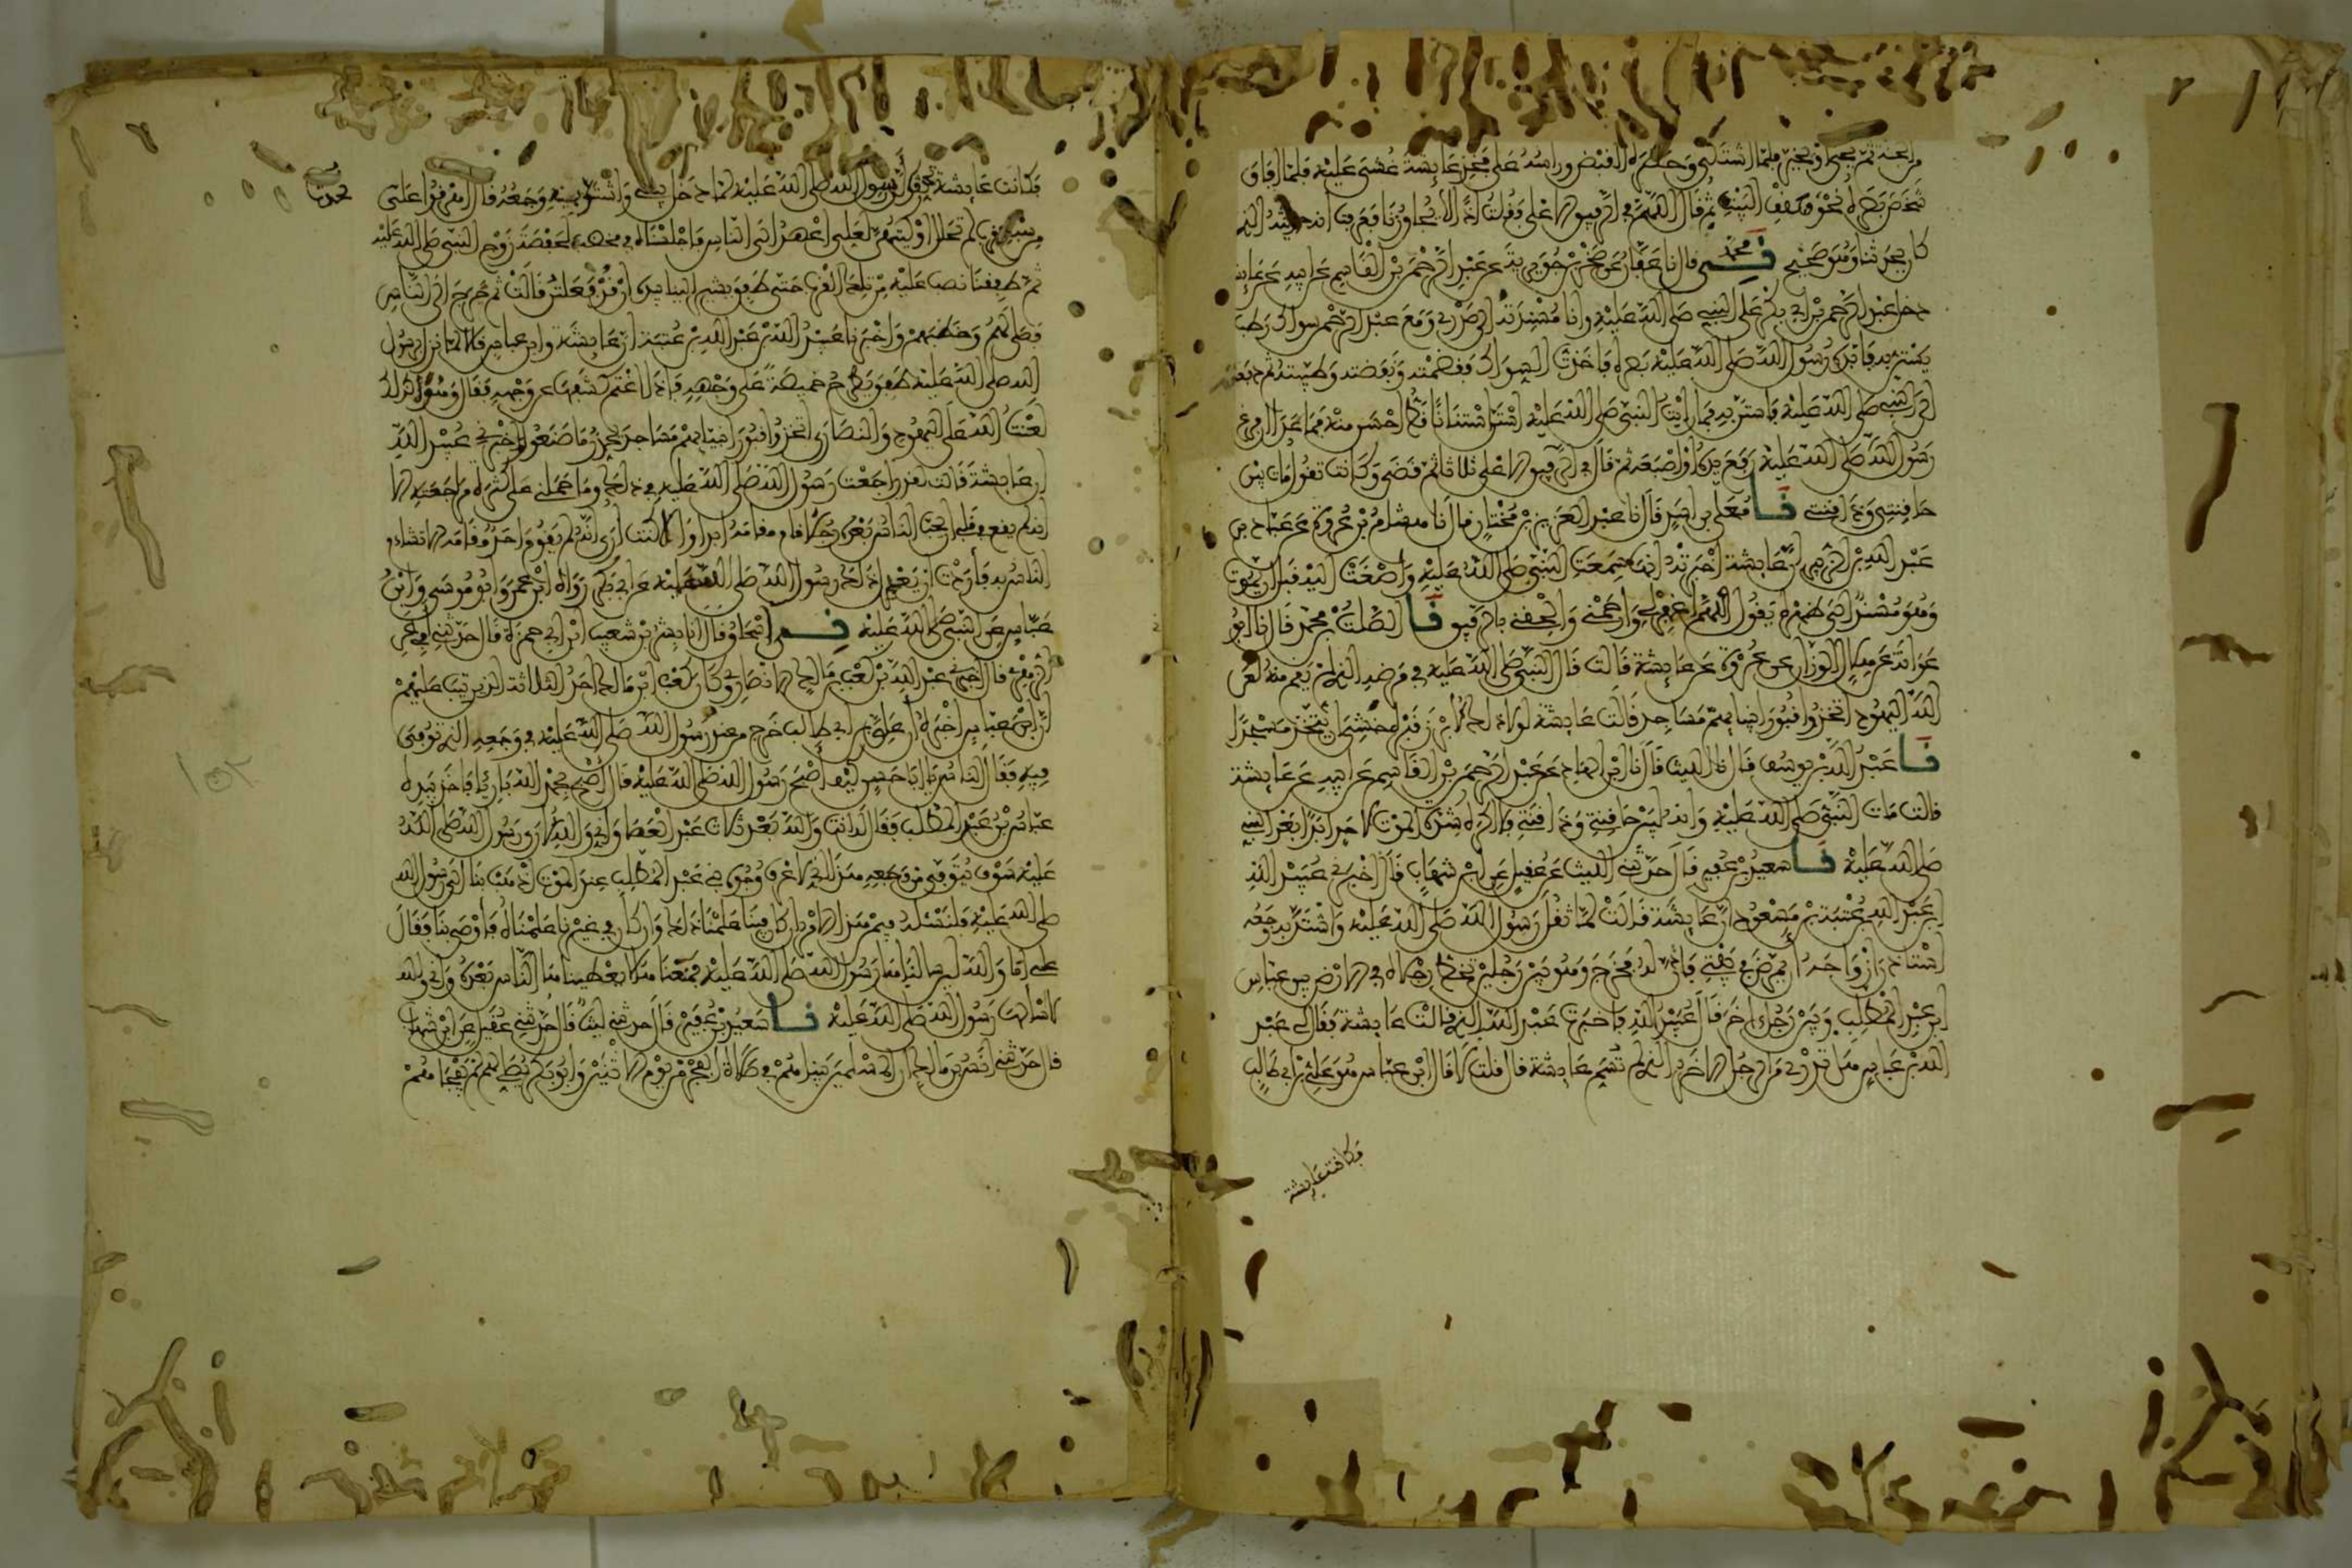 من الجنة ثم يحيى أو يخير فلما اشتكى وحضره القبض ورأسه على فخذ عائشة غشي عليه فلما أفاق
شخص بصره نحو سقف البيت ثم قال اللهم في الرفيق الأعلى فقلت إذا لا يجاورنا فعرفت أنه حديثه الذي
كان يحدثنا وهو صحيح نا محمد قال نا عفان عن صخر بن جويرية عن عبد الرحمن بن القاسم عن أبيه عن عائشة
دخل عبد الرحمن بن أبي بكر على النبي صلى الله عليه وأنا مسندته إلى صدري ومع عبد الرحمن سواك رطب
يستن به فأبده رسول الله صلى الله عليه بصره فأخذت السواك فقضمته ونفضته وطيبته ثم دفعته
إلى النبي صلى الله عليه فاستن به فما رأيت النبي صلى الله عليه استن استنانا قط أحسن منه فما عدا أن فرغ
رسول الله صلى الله عليه رفع يده أو إصبعه ثم قال في الرفيق الأعلى ثلاثا ثم قضى وكانت تقول مات بين
حاقنتي وذاقنتي نا معلى بن أسد قال نا عبد العزيز بن مختار قال نا هشام بن عروة عن عباد بن
عبد الله بن الزبير أن عائشة أخبرته أنها سمعت النبي صلى الله عليه وأصغت إليه قبل أن يموت
وهو مسند إلي ظهره يقول اللهم اغفر لي وارحمني وألحقني بالرفيق نا الصلت بن محمد قال نا أبو
عوانة عن هلال الوزان عن عروة عن عائشة قالت قال النبي صلى الله عليه في مرضه الذي لم يقم منه لعن
الله اليهود اتخذوا قبور أنبيائهم مساجد قالت عائشة لولا ذلك لأبرز قبره خشي أن يتخذ مسجدا
نا عبد الله بن يوسف قال نا الليث قال نا ابن الهاد عن عبد الرحمن بن القاسم عن أبيه عن عائشة
قالت مات النبي صلى الله عليه وإنه لبين حاقنتي وذاقنتي فلا أكره شدة الموت لأحد أبدا بعد النبي
صلى الله عليه نا سعيد بن عفير قال حدثني الليث عن عقيل عن ابن شهاب قال أخبرني عبيد الله
بن عبد الله بن عتبة بن مسعود أن عائشة قالت لما ثقل رسول الله صلى الله عليه واشتد به وجعه
استأذن أزواجه أن يمرض في بيتي فأذن له فخرج وهو بين رجلين تخط رجلاه في الأرض بين عباس
بن عبد المطلب وبين رجل آخر قال عبيد الله فأخبرت عبد الله بالذي قالت عائشة فقال لي عبد
الله بن عباس هل تدري من الرجل الآخر الذي لم تسم عائشة قال قلت لا قال ابن عباس هو علي بن أبي طالب
فكانت عائشة
فكانت عائشة تحدث أن رسول الله صلى الله عليه لما دخل بيتي واشتد به وجعه قال أهريقوا علي
من سبع قرب لم تحلل أوكيتهن لعلي أعهد إلى الناس فأجلسناه في مخضب لحفصة زوج النبي صلى الله عليه
ثم طفقنا نصب عليه من تلك القرب حتى طفق يشير إلينا بيده أن قد فعلتن قالت ثم خرج إلى الناس
فصلى لهم وخطبهم وأخبرنا عبيد الله بن عبد الله بن عتبة أن عائشة وابن عباس قالا لما نزل برسول
الله صلى الله عليه طفق يطرح خميصة على وجهه فإذا اغتم كشفها عن وجهه فقال وهو كذلك
لعنة الله على اليهود والنصارى اتخذوا قبور أنبيائهم مساجد يحذر ما صنعوا أخبرني عبيد الله
أن عائشة قالت لقد راجعت رسول الله صلى الله عليه في ذلك وما حملني على كثرة مراجعته إلا
أنه لم يقع في قلبي أن يحب الناس بعده رجلا قام مقامه أبدا وألا كنت أرى أنه لم يقم أحد مقامه إلا تشاءم
الناس به فأردت أن يعدل ذلك رسول الله صلى الله عليه عن أبي بكر رواه ابن عمر وأبو موسى وابن
عباس عن النبي صلى الله عليه نا إسحاق قال أنا بشر بن شعيب ابن أبي حمزة قال حدثني أبي عن
الزهري قال أخبرني عبد الله بن كعب بن مالك الأنصاري وكان كعب ابن مالك أحد الثلاثة الذين تيب عليهم
أن ابن عباس أخبره أن علي بن أبي طالب خرج من عند رسول الله صلى الله عليه في وجعه الذي توفي
فيه فقال الناس يا أبا حسن كيف أصبح رسول الله صلى الله عليه قال أصبح بحمد الله بارئا فأخذ بيده
عباس بن عبد المطلب فقال له أنت والله بعد ثلاث عبد العصا وإني والله لأرى رسول الله صلى الله
عليه سوف يتوفى من وجعه هذا إني لأعرف وجوه بني عبد المطلب عند الموت اذهب بنا إلى رسول الله
صلى الله عليه فلنسئله فيمن هذا الأمر إن كان فينا علمنا ذلك وإن كان في غيرنا علمناه فأوصى بنا فقال
علي إنا والله لئن سألناها رسول الله صلى الله عليه فمنعناها لا يعطيناها الناس بعده وإني والله
لا أسألها رسول الله صلى الله عليه نا سعيد بن عفير قال حدثني ليث قال حدثني عقيل عن ابن شهاب
قال حدثني أنس بن مالك أن المسلمين بينا هم في صلاة الفجر من يوم الاثنين وأبو بكر يصلي لهم لم يفجأهم